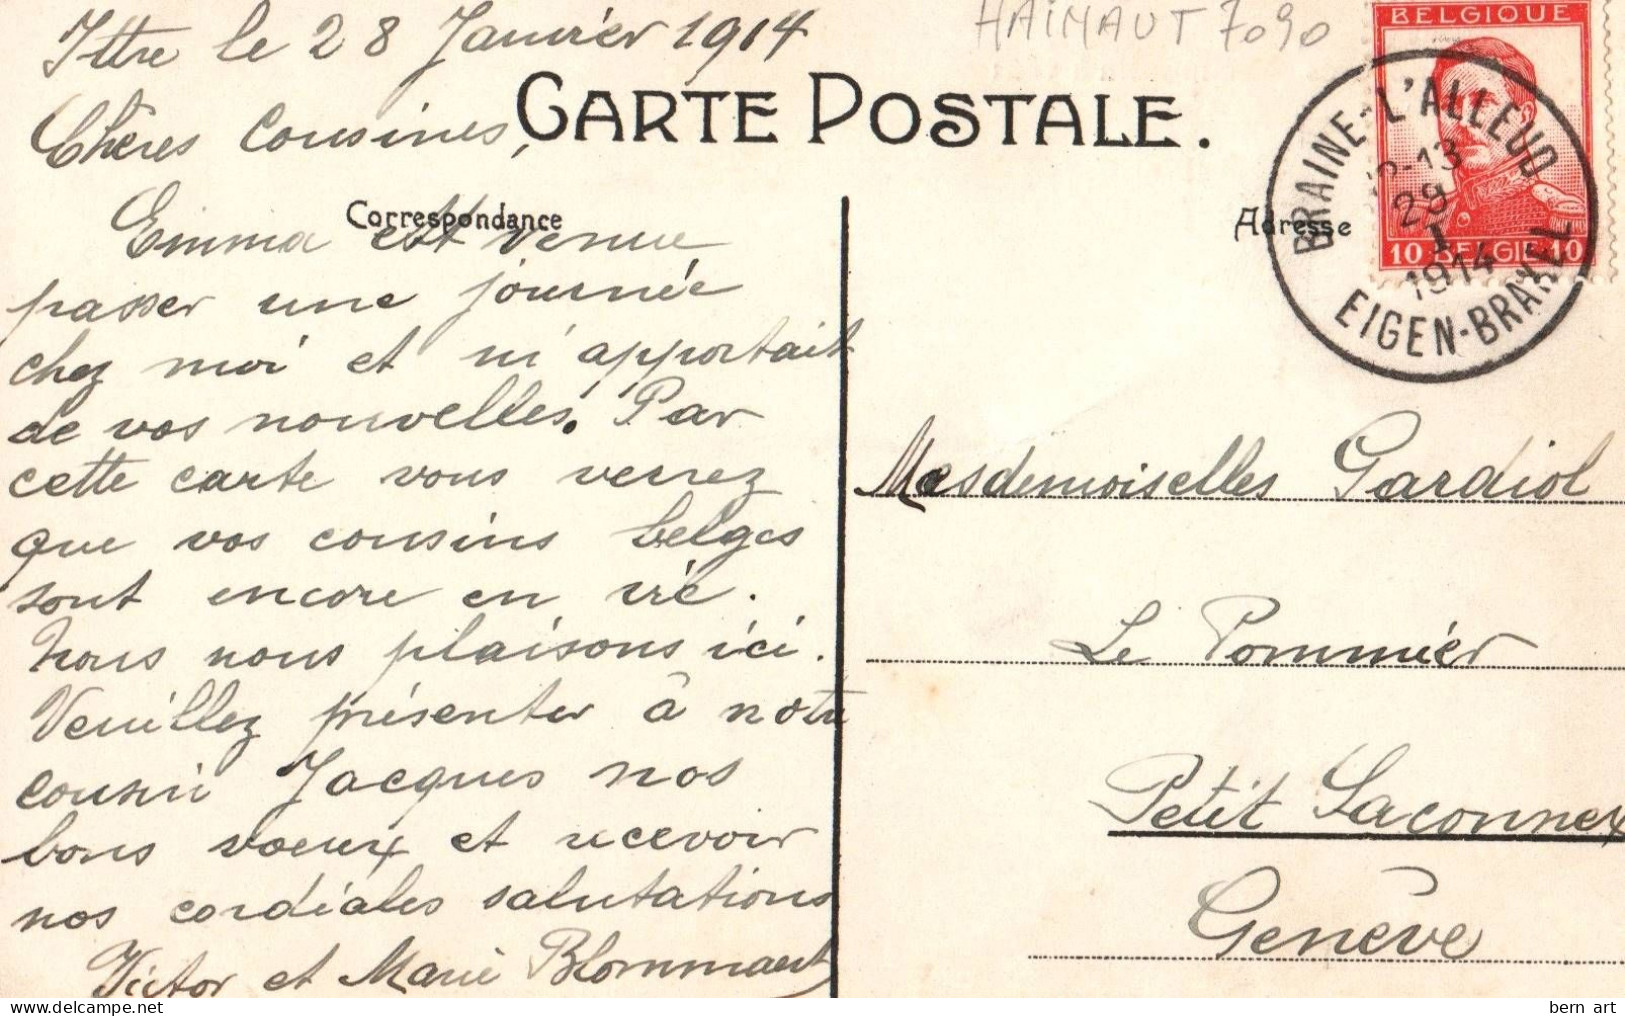 Ittre le 28 Janvier 1914
HAINAUT 7090
CARTE POSTALE.
Chères Cousines,
Correspondance
Emma est venue
passer une journée
chez moi et m'apportait
de vos nouvelles. Par
cette carte vous verrez
que vos cousins belges
sont encore en vie.
Nous nous plaisons ici.
Veuillez présenter à notre
cousin Jacques nos
bons voeux et recevoir
nos cordiales salutations
Victor et Marie Blommaert
BELGIQUE
10 BELGIË 10
BRAINE-L'ALLEUD
12-13
29
I
1914
EIGEN-BRAKEL
Adresse
Mesdemoiselles Gardiol
Le Pommier
Petit Saconnex
Genève
bern art